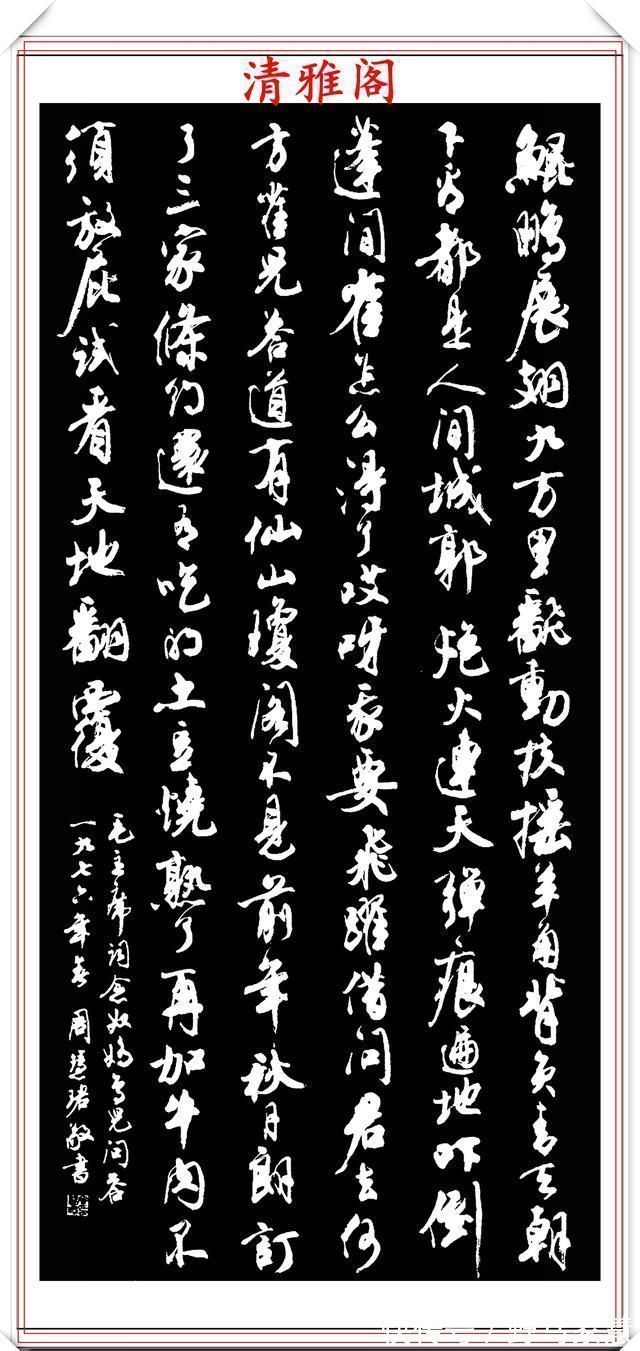 清雅阁
鯤鵬展翅九万里飜動扶摇羊角背负青天朝
下看都是人间城郭炮火連天彈痕遍地吓倒
蓬间雀怎么得了哎呀我要飛躍借问君去何
方雀兒答道有仙山瓊阁不見前年秋月朗訂
了三家條约還有吃的土豆燒熟了再加牛肉不
須放屁試看天地翻覆
毛主席词念奴嬌鸟兒问答
一九七六年春 周慧珺敬書